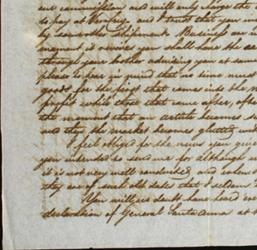 our commission and will only charge the
to pay at Vera Cruz. and I trust that you wi
by some other shipment. Business are in
moment it revives you shall have the ad
through your brother advising you at same
please to bear in mind that no time must
goods for the first that comes into the m
profit while those that come after, often
the moment that an article becomes s
and they the market becomes glutted with
I feel obliged for the news you give
you intended to send me for although
it is not very well and
they are of such old dates that I seldom
You will no doubt have heard ere
declaration of General Santa Anna at